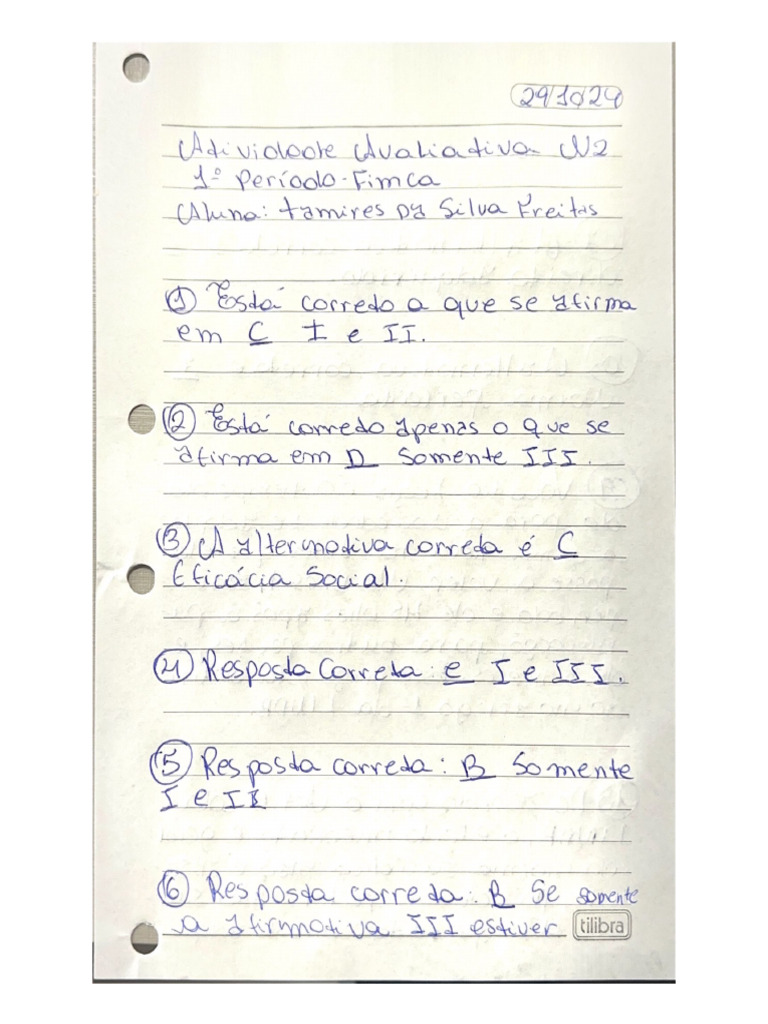 29/10/24
Atividade Avaliativa N2
1º Período - Fimca
Aluna: tamires da Silva Freitas
① Está corredo a que se afirma
em C I e II.
② Está corredo apenas o que se
afirma em D somente III.
③ A alternativa correda é C
Eficácia Social.
④ Resposta Correta: e I e III.
⑤ Resposta correda: B Somente
I e II
⑥ Resposta correda: B Se somente
a afirmativa III estiver
tilibra